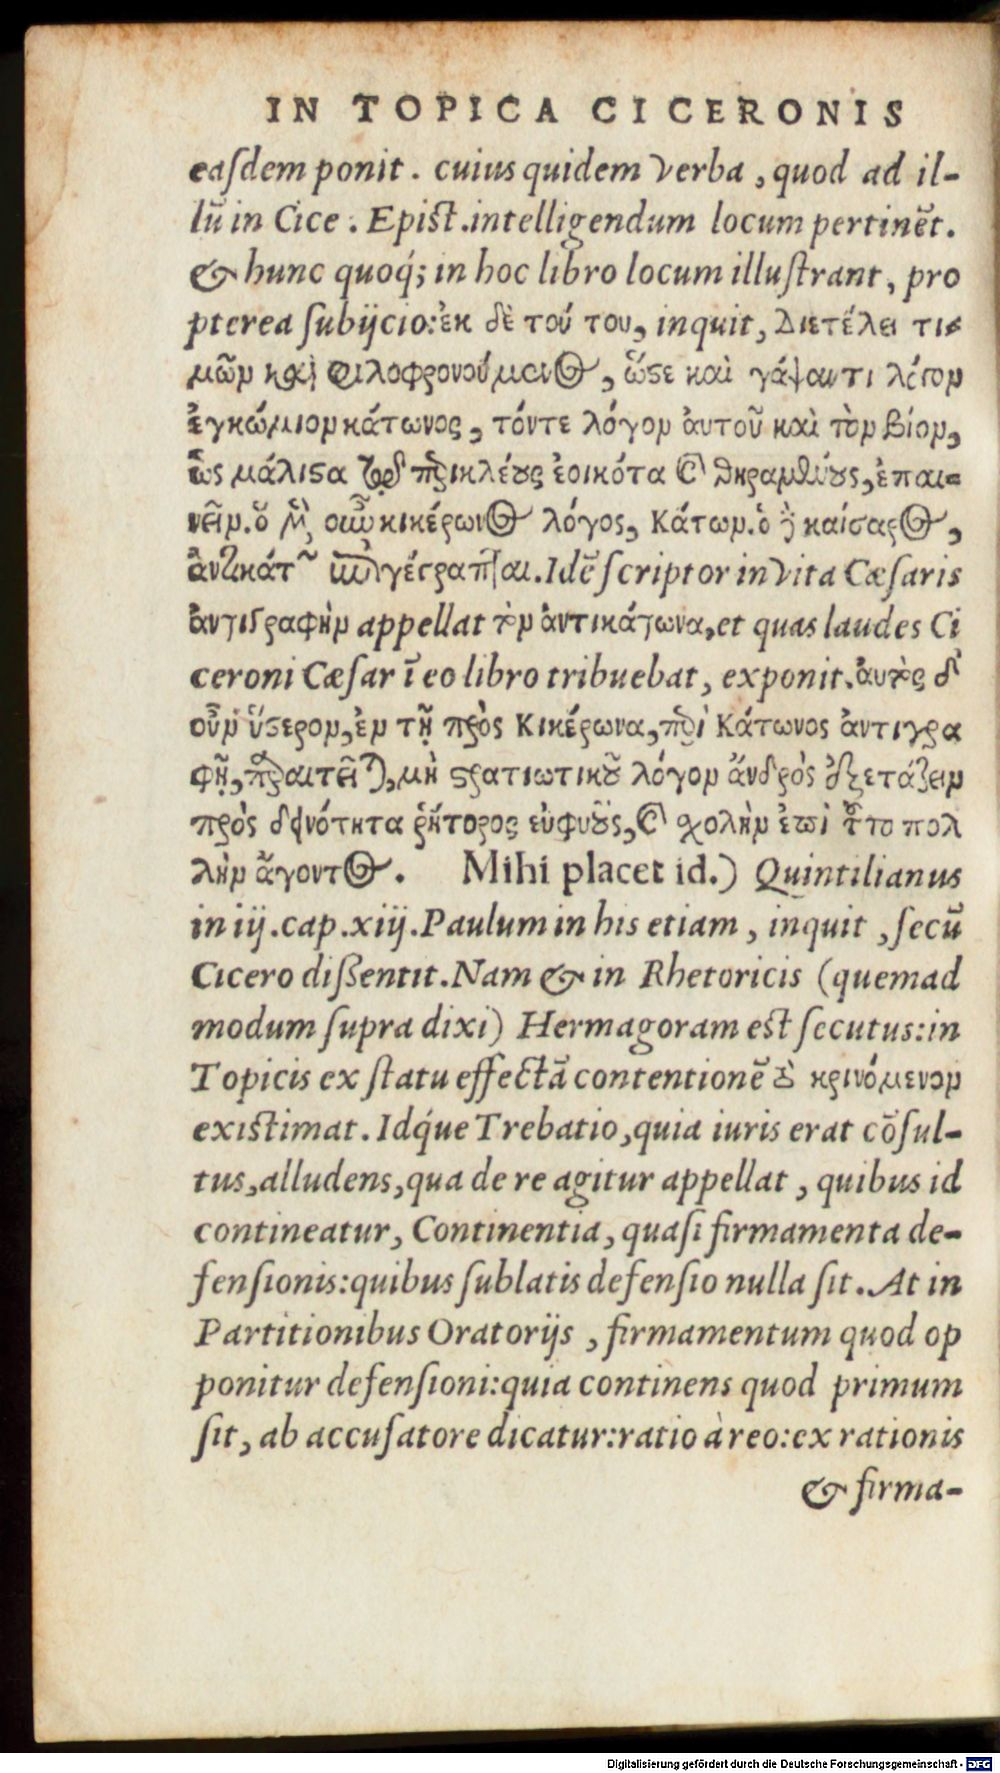 IN TOPICA CICERONIS
easdem ponit. cuius quidem verba, quod ad il-
lũ in Cice. Epist. intelligendum locum pertinẽt.
& hunc quoq́; in hoc libro locum illustrant, pro
pterea subijcio: ἐκ δὲ τού του, inquit, Διετέλει τι-
μῶν καὶ φιλοφρονούμενος, ὥστε καὶ γράψαντι λόγον
ἐγκώμιον κάτωνος, τόντε λόγον ἀυτοῦ καὶ τὸν βίον,
ὡς μάλιστα τῷ περικλέους ἐοικότα καὶ θηραμένους, ἐπαι-
νεῖν. ὁ μὲν οὖν κικέρωνος λόγος, Κάτων. ὁ δὲ καίσαρος,
ἀντικάτων γέγραπται. Idẽ scriptor in vita Cæsaris
ἀντιγραφὴν appellat τὸν ἀντικάτωνα, et quas laudes Ci
ceroni Cæsar ĩ eo libro tribuebat, exponit. ἀυτὸς δ'
οὖν ὕστερον, ἐν τῇ πρὸς Κικέρωνα, περὶ Κάτωνος ἀντιγρα
φῇ, παραιτεῖται, μὴ στρατιωτικοῦ λόγον ἄνδρὸς ἀντεξετάζειν
πρὸς δεινότητα ῥήτορος εὐφυοῦς, καὶ σχολὴν ἐπὶ τοῦτο πολ
λὴν ἄγοντος. Mihi placet id.) Quintilianus
in iij. cap. xiij. Paulum in his etiam, inquit, secũ
Cicero dissentit. Nam & in Rhetoricis (quemad
modum supra dixi) Hermagoram est secutus: in
Topicis ex statu effectã contentionẽ τὸ κρινόμενον
existimat. Idq́ue Trebatio, quia iuris erat cõsul-
tus, alludens, qua de re agitur appellat, quibus id
contineatur, Continentia, quasi firmamenta de-
fensionis: quibus sublatis defensio nulla sit. At in
Partitionibus Oratorijs, firmamentum quod op
ponitur defensioni: quia continens quod primum
sit, ab accusatore dicatur: ratio à reo: ex rationis
& firma-
Digitalisierung gefördert durch die Deutsche Forschungsgemeinschaft - DFG